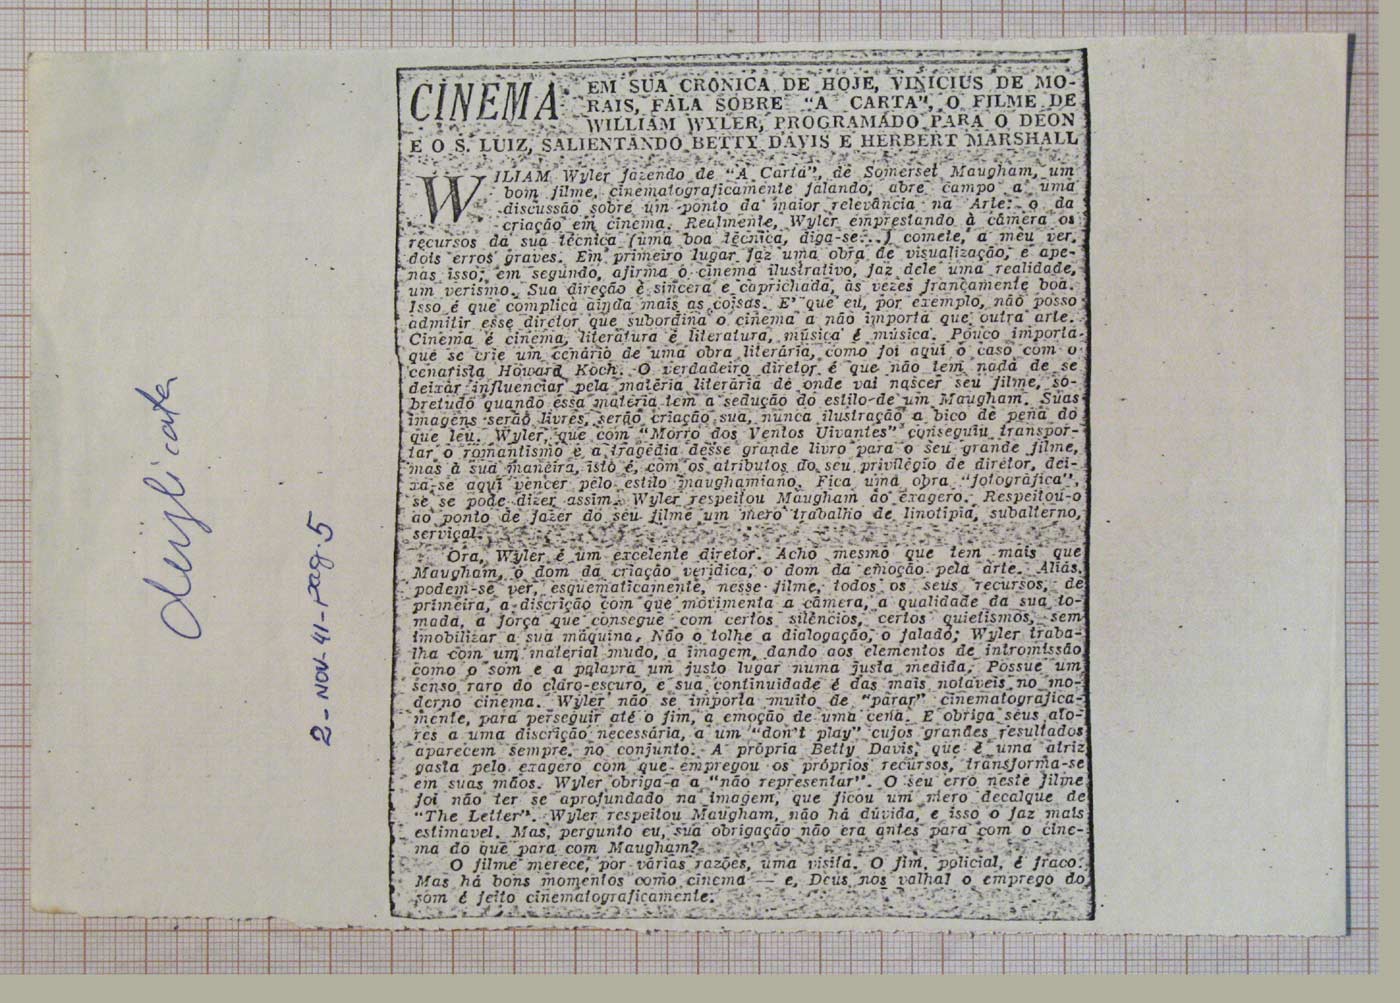 CINEMA: EM SUA CRÔNICA DE HOJE, VINICIUS DE MO-
RAIS, FALA SÔBRE "A CARTA", O FILME DE
WILLIAM WYLER, PROGRAMADO PARA O DÉON
E O S. LUIZ, SALIENTANDO BETTY DAVIS E HERBERT MARSHALL
WILIAM Wyler fazendo de "A Carta", de Somerset Maugham, um
bom filme, cinematograficamente falando, abre campo a uma
discussão sobre um ponto da maior relevância na Arte: o da
criação em cinema. Realmente, Wyler emprestando à câmera os
recursos da sua técnica (uma boa técnica, diga-se...) comete, a meu ver,
dois erros graves. Em primeiro lugar faz uma obra de visualização, e ape-
nas isso; em segundo, afirma o cinema ilustrativo, faz dele uma realidade,
um verismo. Sua direção é sincera e caprichada, às vezes francamente boa.
Isso é que complica ainda mais as coisas. E' que eu, por exemplo, não posso
admitir esse diretor que subordina o cinema a não importa que outra arte.
Cinema é cinema, literatura é literatura, música é música. Pouco importa
que se crie um cenário de uma obra literária, como foi aqui o caso com o
cenarista Howard Koch. O verdadeiro diretor é que não tem nada de se
deixar influenciar pela matéria literária de onde vai nascer seu filme, so-
bretudo quando essa matéria tem a sedução do estilo de um Maugham. Suas
imagens serão livres, serão criação sua, nunca ilustração a bico de pena do
que leu. Wyler, que com "Morro dos Ventos Uivantes" conseguiu transpor-
tar o romantismo e a tragédia desse grande livro para o seu grande filme,
mas à sua maneira, isto é, com os atributos do seu privilégio de diretor, dei-
xa-se aqui vencer pelo estilo maughamiano. Fica uma obra "fotográfica",
se se pode dizer assim. Wyler respeitou Maugham ao exagero. Respeitou-o
ao ponto de fazer do seu filme um mero trabalho de linotipia, subalterno,
serviçal.
Ora, Wyler é um excelente diretor. Acho mesmo que tem mais que
Maugham, o dom da criação verídica, o dom da emoção pela arte. Aliás,
podem-se ver, esquematicamente, nesse filme, todos os seus recursos, de
primeira, a discrição com que movimenta a câmera, a qualidade da sua to-
mada, a força que consegue com certos silêncios, certos quietismos, sem
imobilizar a sua máquina. Não o tolhe a dialogação, o falado; Wyler traba-
lha com um material mudo, a imagem, dando aos elementos de intromissão
como o som e a palavra um justo lugar numa justa medida. Possue um
senso raro do claro-escuro, e sua continuidade é das mais notáveis no mo-
derno cinema. Wyler não se importa muito de "parar" cinematografica-
mente, para perseguir até o fim, a emoção de uma cena. E obriga seus ato-
res a uma discrição necessária, a um "don't play" cujos grandes resultados
aparecem sempre no conjunto. A própria Betty Davis, que é uma atriz
gasta pelo exagero com que empregou os próprios recursos, transforma-se
em suas mãos. Wyler obriga-a a "não representar". O seu erro neste filme
foi não ter se aprofundado na imagem, que ficou um mero decalque de
"The Letter". Wyler respeitou Maugham, não há dúvida, e isso o faz mais
estimavel. Mas, pergunto eu, sua obrigação não era antes para com o cine-
ma do que para com Maugham?
O filme merece, por várias razões, uma visita. O fim, policial, é fraco.
Mas há bons momentos como cinema — e, Deus nos valha! o emprego do
som é feito cinematograficamente.
duplicata
2-NOV-41-pag.5